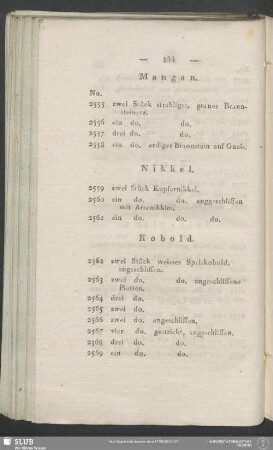 — 134 —
Mangan.
No.
2555 zwei Stück strahliger, grauer Braun-
steinerz.
2556 ein do. do.
2557 drei do. do.
2558 ein do. erdiger Braunstein auf Gneis.
Nikkel.
2559 zwei Stück Kupfernikkel.
2560 ein do. do. angeschliffen
mit Arsenikkies.
2561 ein do. do. do.
Kobold.
2562 zwei Stück weisser Speiskobold,
angeschliffen.
2563 zwei do. do. angeschliffene
Platten.
2564 drei do.
2565 zwei do.
2566 zwei do. angeschliffen.
2567 vier do. gestrickt, angeschliffen.
2568 drei do. do.
2569 ein do. do.
SLUB
Wir führen Wissen.